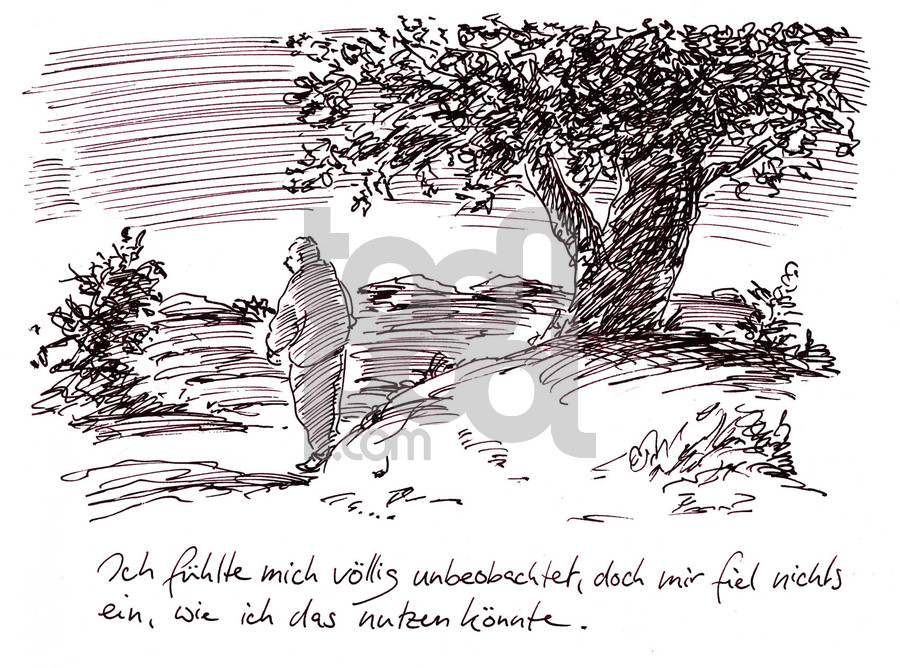 toonpool.com
Ich fühlte mich völlig unbeobachtet, doch mir fiel nichts
ein, wie ich das nutzen könnte.